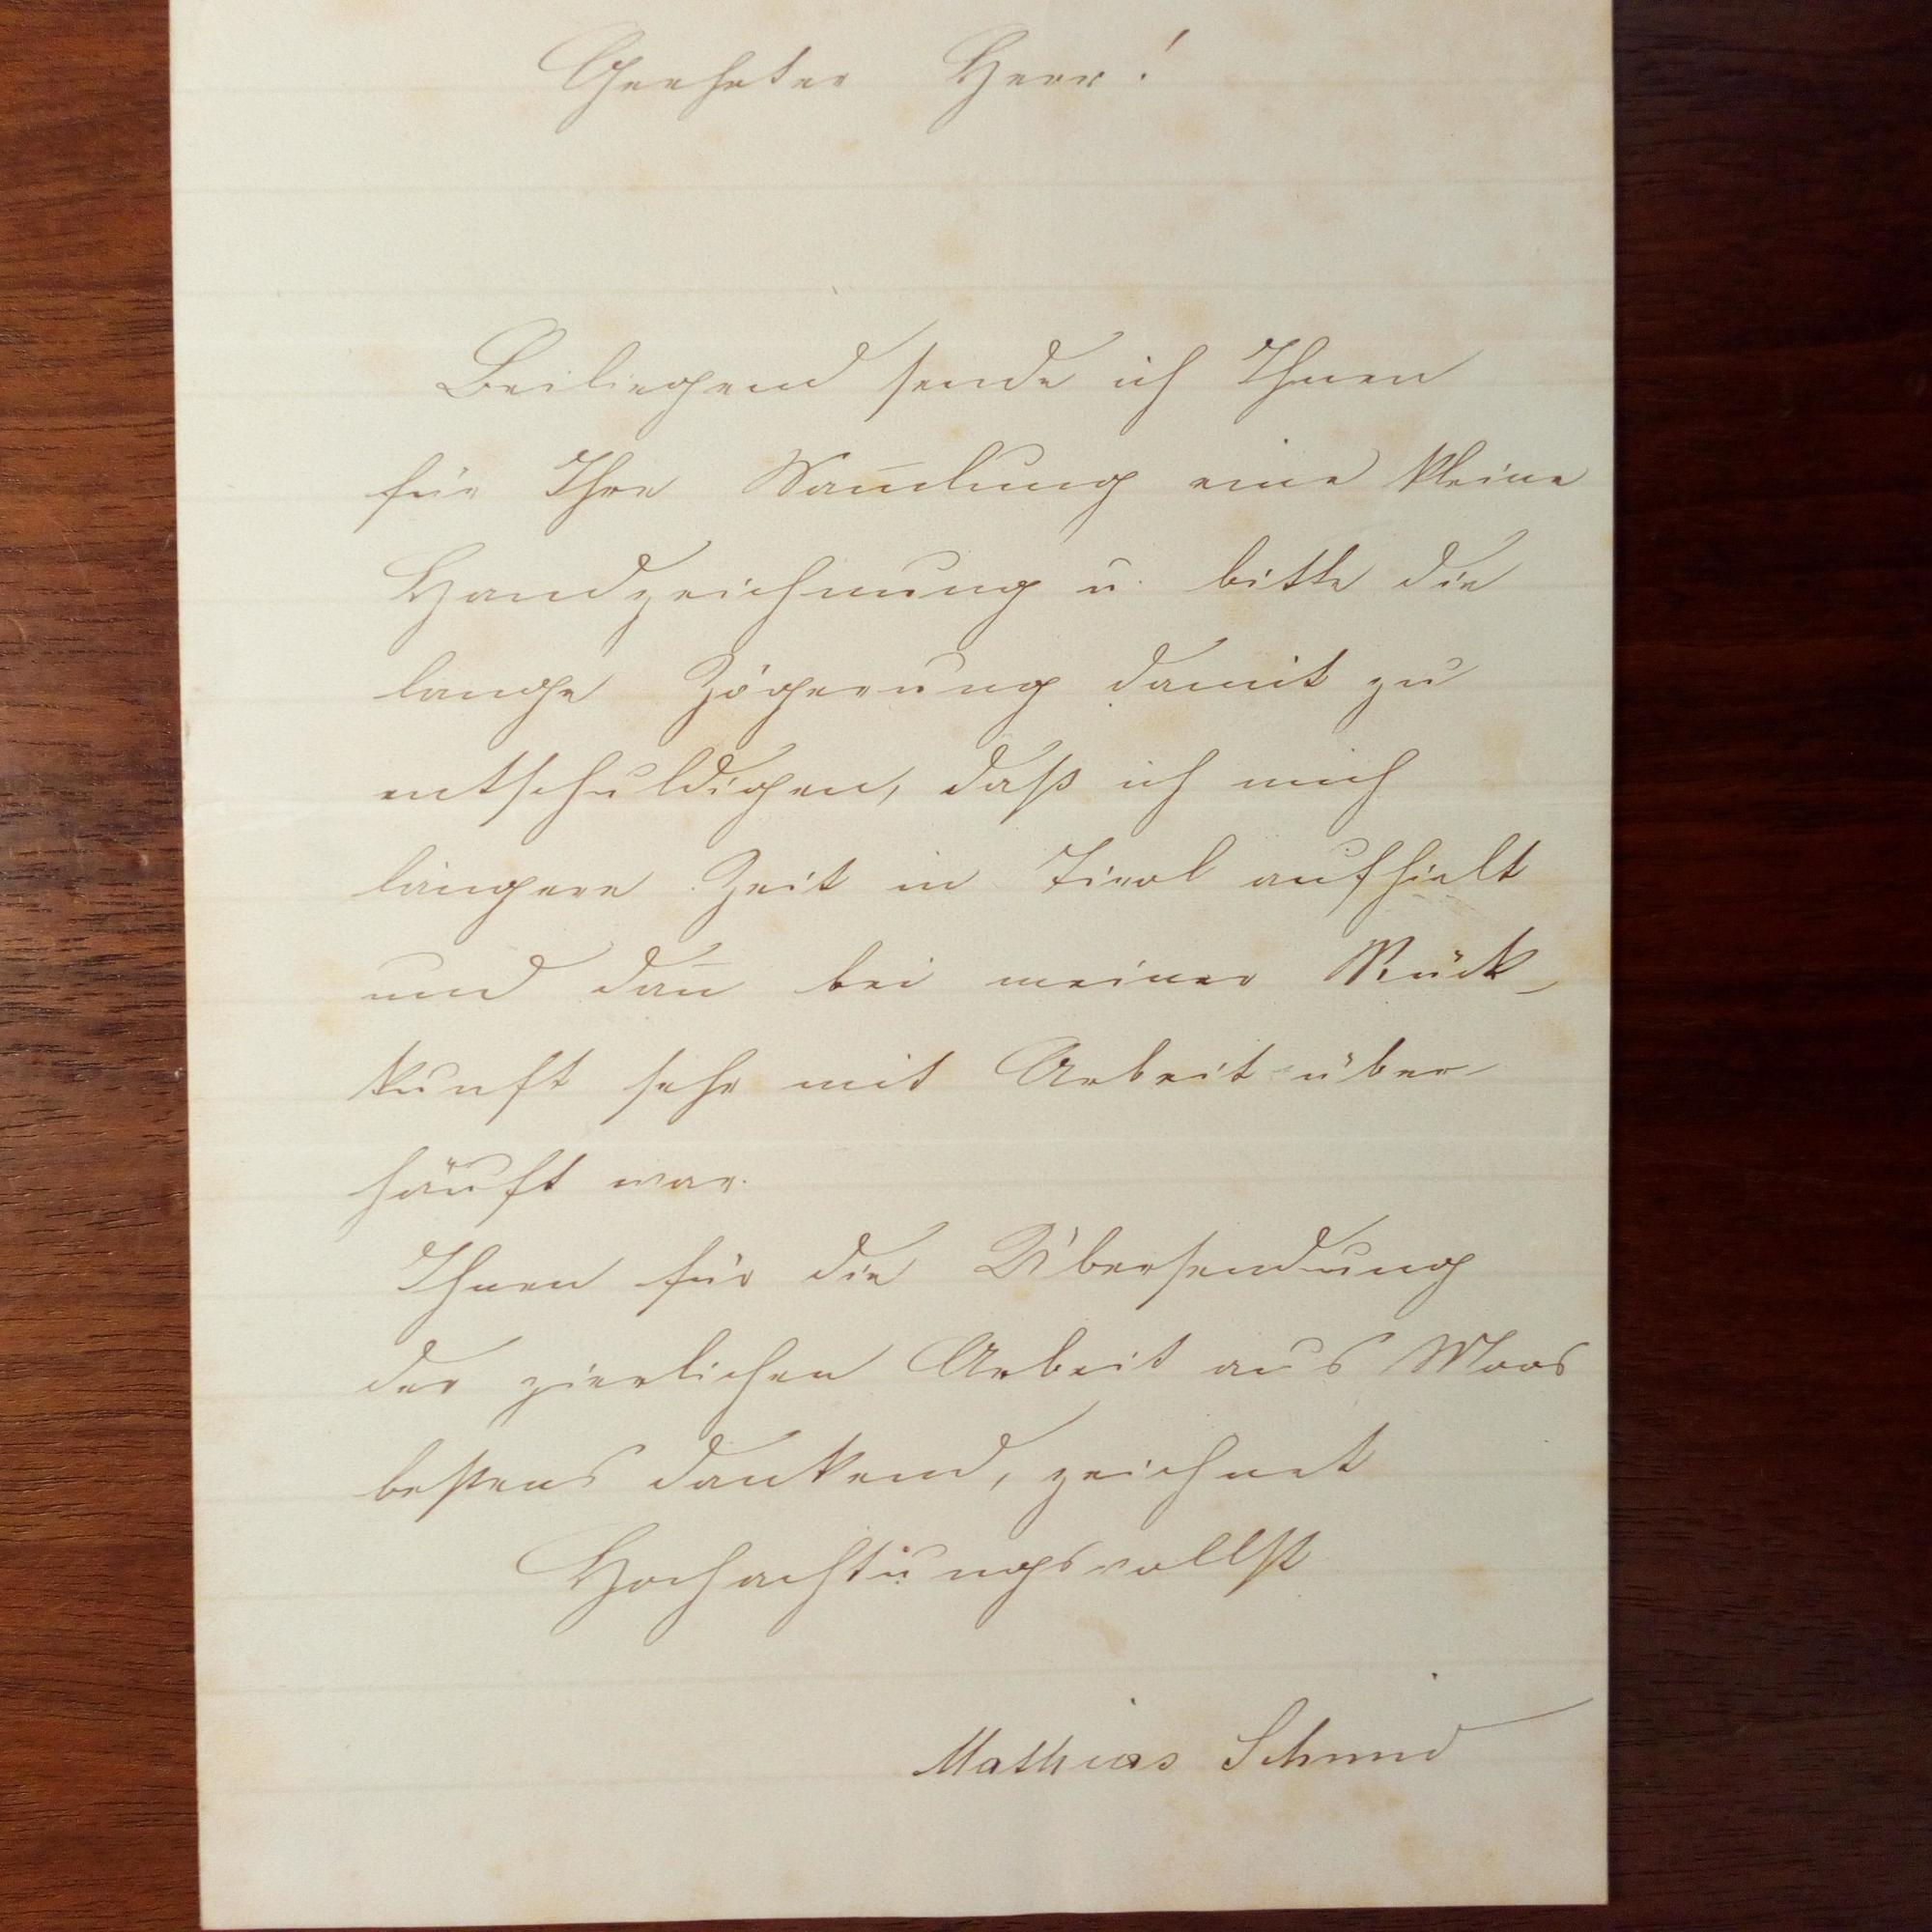 Geehrter Herr!
Beiliegend sende ich Ihnen
für Ihre Sam̅lung eine kleine
Handzeichnung u. bitte die
lange Zögerung damit zu
entschuldigen, daß ich mich
längere Zeit in Tirol aufhielt
und dan̅ bei meiner Rück-
kunft sehr mit Arbeit über-
häuft war.
Ihnen für die Übersendung
der zierlichen Arbeit aus Moos
bestens dankend, zeichnet
Hochachtungsvollst
Mathias Schmid